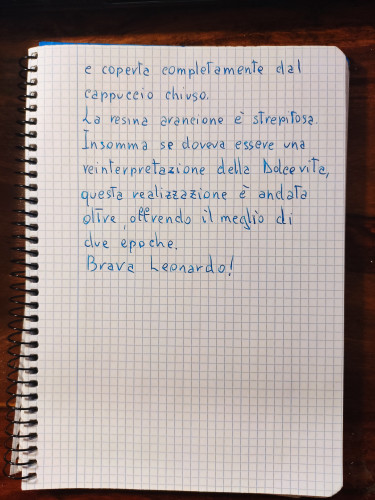 e coperta completamente dal
cappuccio chiuso.
La resina arancione è strepitosa.
Insomma se doveva essere una
reinterpretazione della Dolcevita,
questa realizzazione è andata
oltre, offrendo il meglio di
due epoche.
Brava Leonardo!